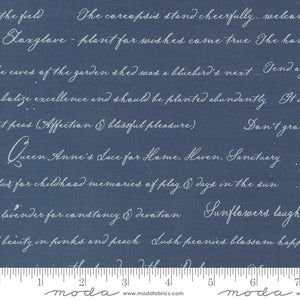 the field The coreopsis stand cheerfully... welco
Foxglove - plant for wishes come true The hon
e eaves of the garden shed was a bluebird's next ... Tend a
bolize excellence and should be planted abundantly H
t peas (Affection & blissful pleasure) Don't gra
Queen Anne's Lace for Home, Haven, Sanctuary
for childhood memories of play & days in the sun
lavender for constancy & devotion Sunflowers laugh
beauty in pinks and peach Lush peonies blossom happ
1 2 3 4 5 6 7
moda www.modafabrics.com moda moda